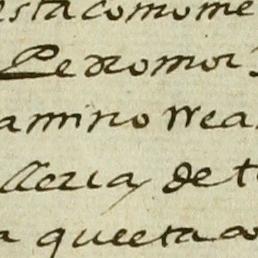 esta como me
Pedro mor
amino Rea
lleria, de t
a queeta co